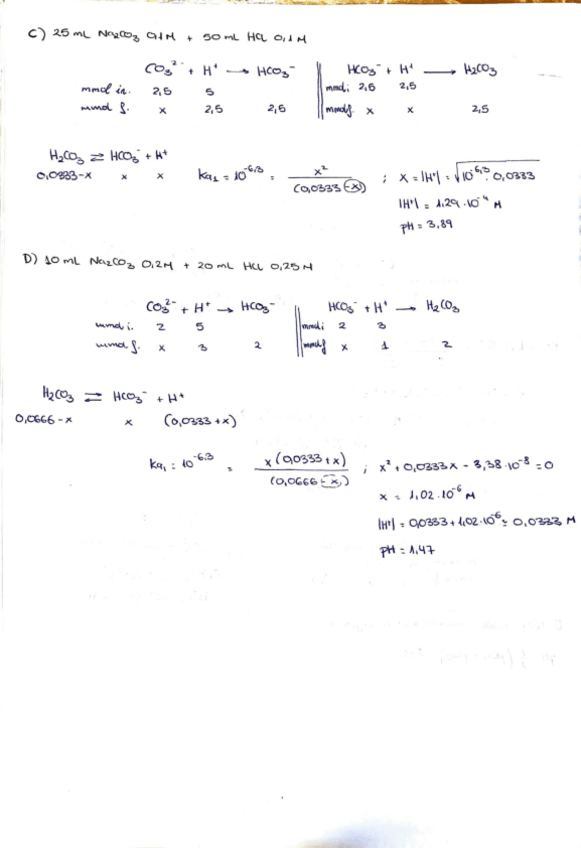 C) 25 mL Na2CO3 0,1M + 50 mL HCl 0,1M
CO3²⁻ + H⁺ → HCO3⁻ || HCO3⁻ + H⁺ → H2CO3
mmol in. 2,5 5 mmol i 2,5 2,5
mmol f. x 2,5 2,5 mmol f. x x 2,5
H2CO3 ⇌ HCO3⁻ + H⁺
0,0333-x x x Ka1 = 10^-6,3 = x² / (0,0333-x) ; x = |H⁺| = √10^-6,3 · 0,0333
|H⁺| = 1,29·10⁻⁴ M
pH = 3,89
D) 10 mL Na2CO3 0,2M + 20 mL HCl 0,25M
CO3²⁻ + H⁺ → HCO3⁻ || HCO3⁻ + H⁺ → H2CO3
mmol i. 2 5 mmol i 2 3
mmol f. x 3 2 mmol f x 1 2
H2CO3 ⇌ HCO3⁻ + H⁺
0,0666-x x (0,0333+x)
Ka1 = 10^-6,3 = x(0,0333+x) / (0,0666-x) ; x² + 0,0333x - 3,38·10⁻⁸ = 0
x = 1,02·10⁻⁶ M
|H⁺| = 0,0333 + 1,02·10⁻⁶ ≈ 0,0333 M
pH = 1,47